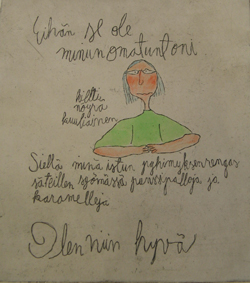 Eihän se ole
minun omatuntoni.
kiltti
nöyrä
kuuliainen
Siellä minä istun pyhimyksenrengas
säteillen syömässä persepalloja ja
karamelleja
Olen niin hyvä